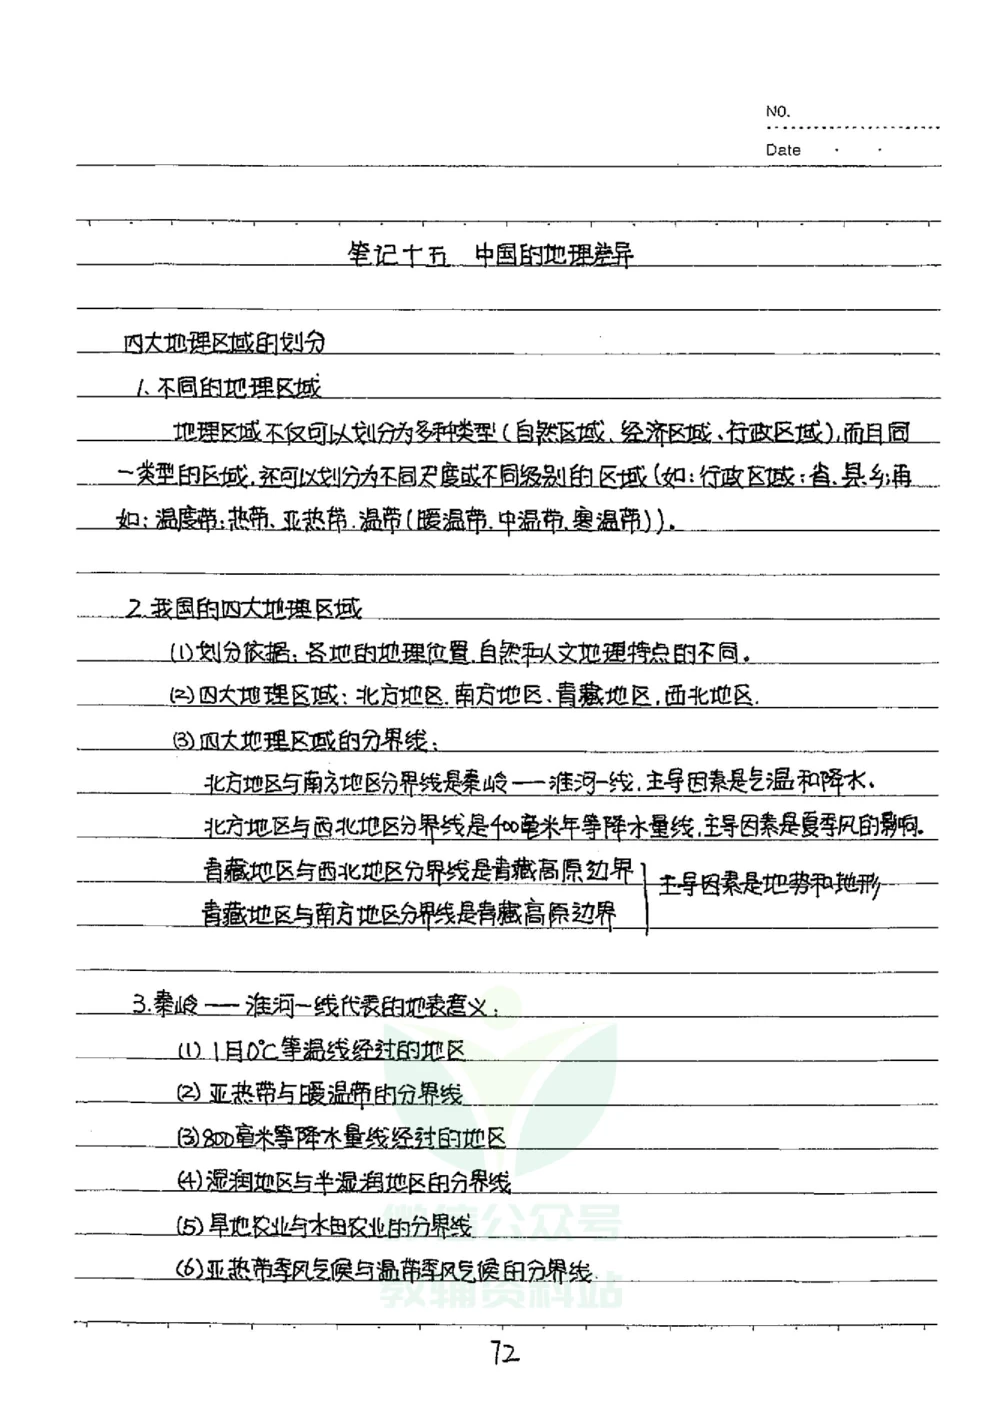 NO.
Date
笔记十五 中国的地理差异
四大地理区域的划分
1、不同的地理区域
地理区域不仅可以划分为多种类型(自然区域、经济区域、行政区域),而且同
一类型的区域,还可以划分为不同尺度或不同级别的区域(如:行政区域:省、县、乡;再
如:温度带:热带、亚热带、温带(暖温带、中温带、寒温带))。
2.我国的四大地理区域
(1)划分依据:各地的地理位置、自然和人文地理特点的不同。
(2)四大地理区域:北方地区、南方地区、青藏地区、西北地区.
(3)四大地理区域的分界线:
北方地区与南方地区分界线是秦岭——淮河一线,主导因素是气温和降水、
北方地区与西北地区分界线是400毫米年等降水量线,主导因素是夏季风的影响.
青藏地区与西北地区分界线是青藏高原边界
主导因素是地势和地形
青藏地区与南方地区分界线是青藏高原边界
3.秦岭——淮河一线代表的地表意义:
(1) 1月0℃等温线经过的地区
(2) 亚热带与暖温带的分界线
(3)800毫米等降水量线经过的地区
(4)湿润地区与半湿润地区的分界线
(5)旱地农业与水田农业的分界线
(6)亚热带季风气候与温带季风气候的分界线.
微信公众号
教辅资料站
72